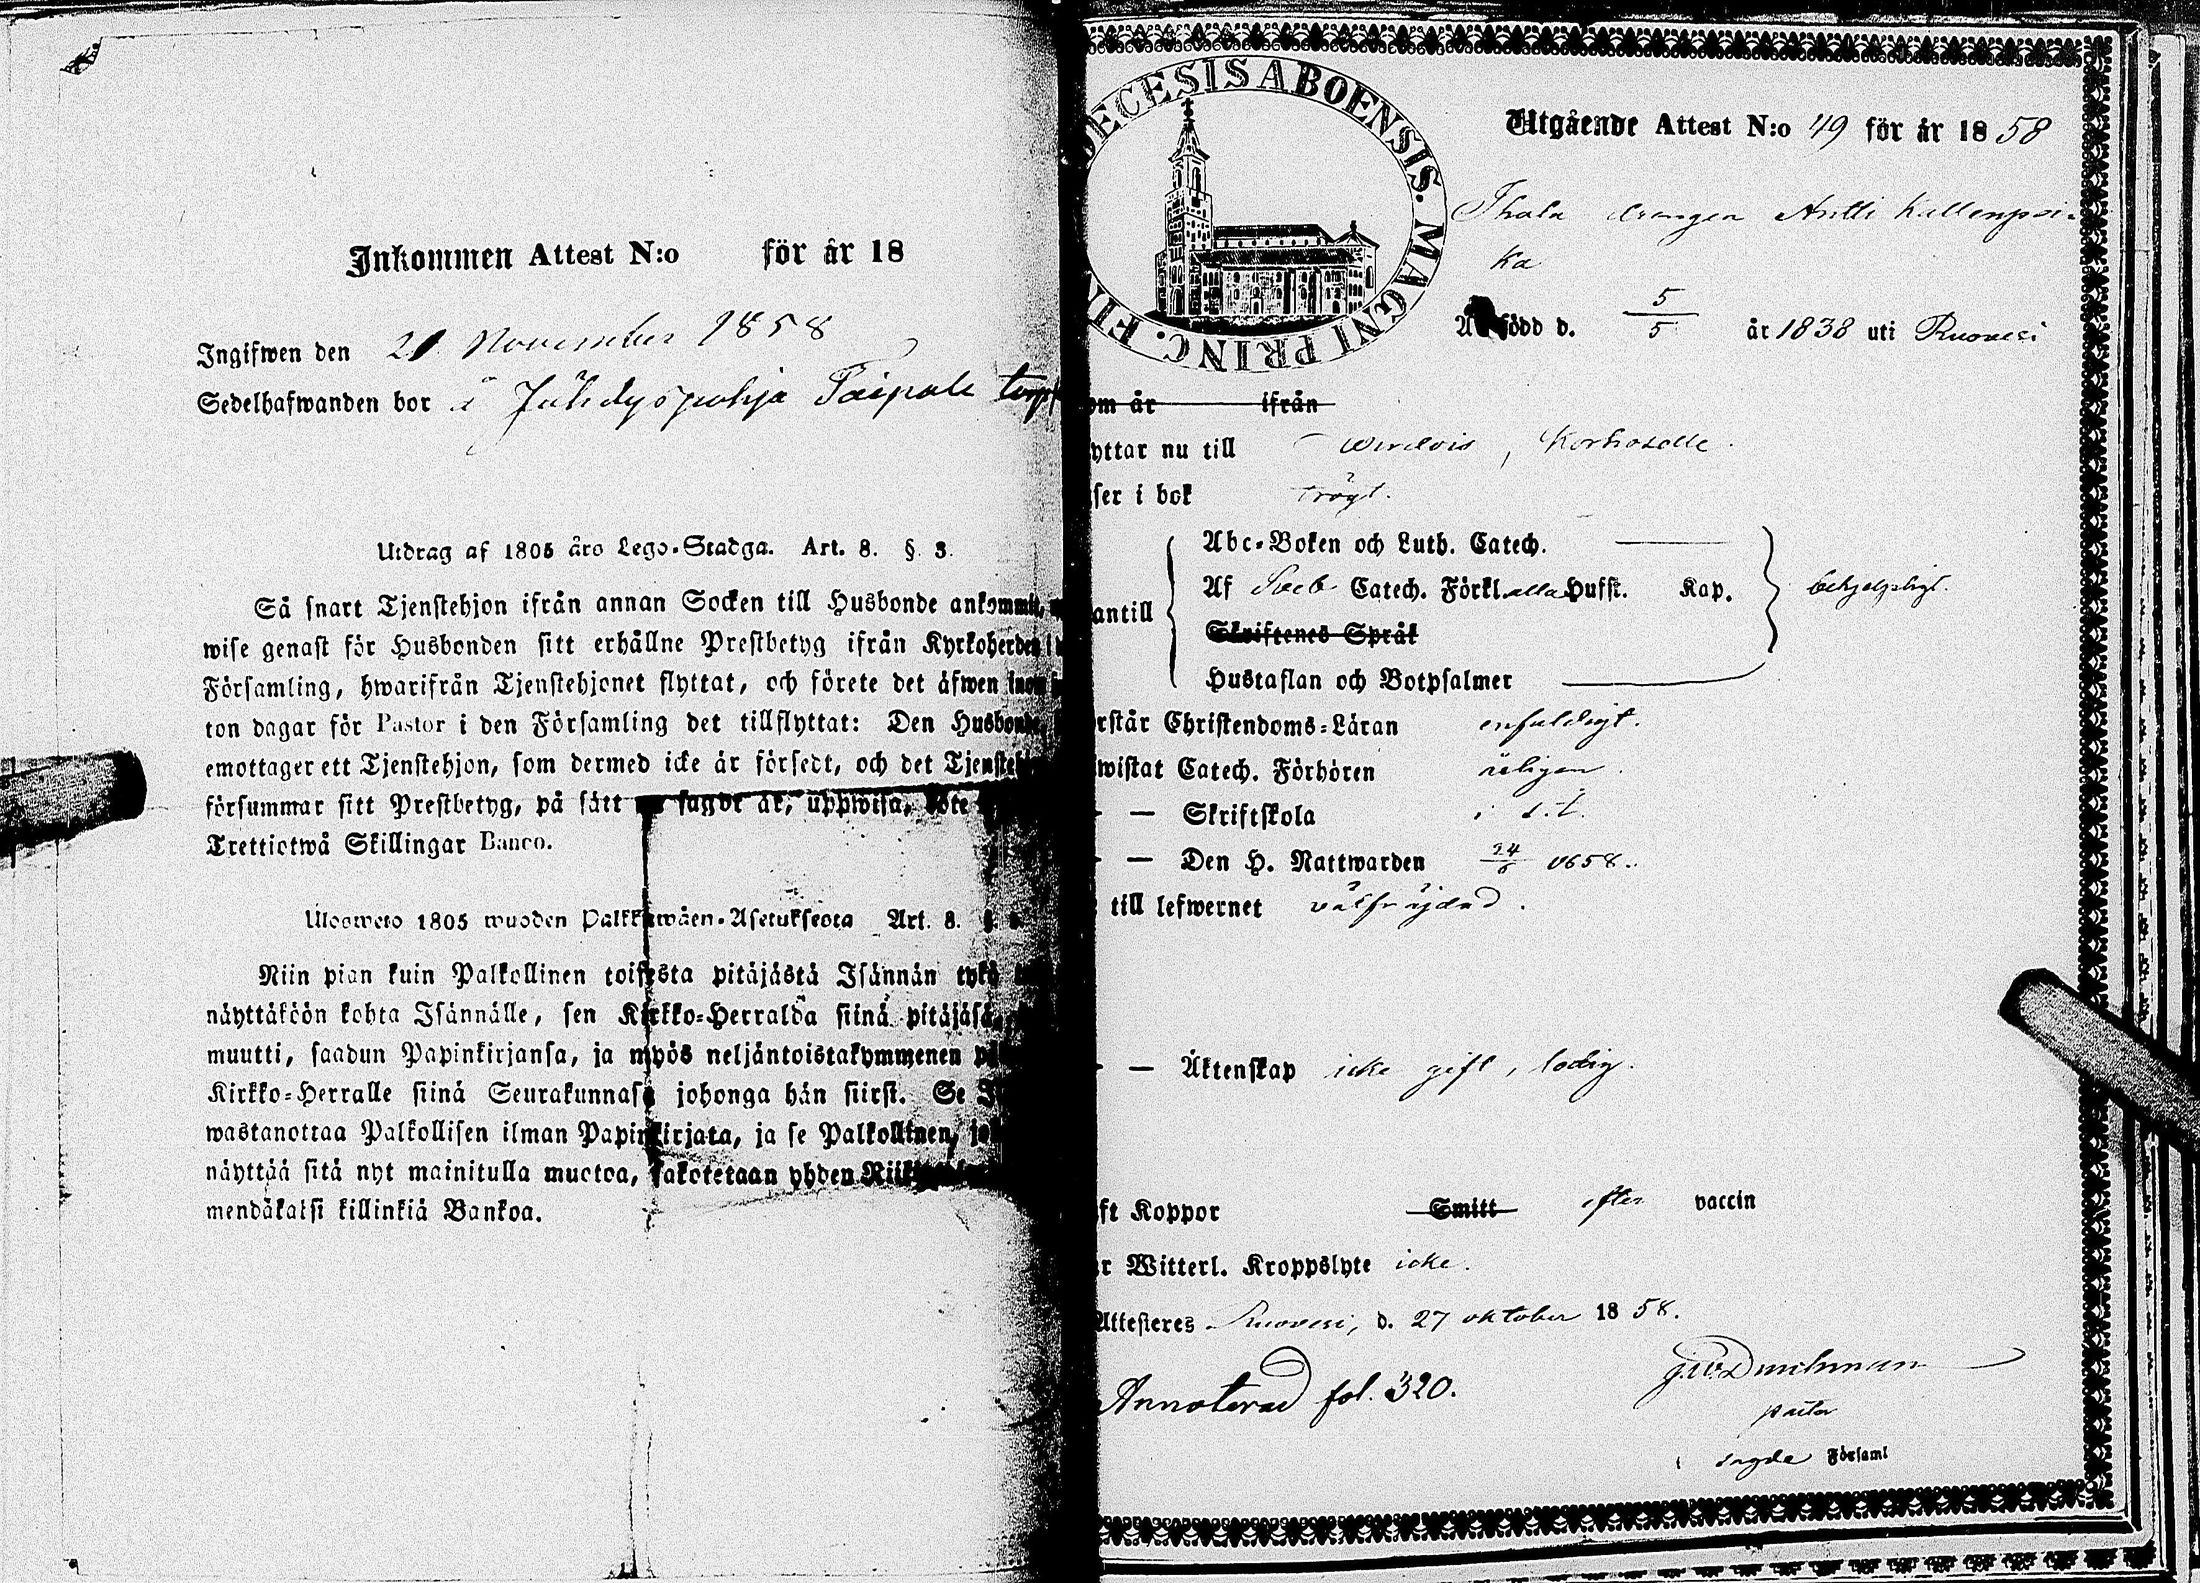 Inkommen Attest N:o för år 18
Ingifwen den 21 November 1858
Sedelhafwanden bor i Jähdyspohja Paipale torp
Utdrag af 1805 års Lego-Stadga. Art. 8. § 3.
Så snart Tjenstehjon ifrån annan Socken till Husbonde ankommit,
wise genast för Husbonden sitt erhållne Prestbetyg ifrån Kyrkoherden i
Församling, hwarifrån Tjenstehjonet flyttat, och förete det äfwen inom
ton dagar för Pastor i den Församling det tillflyttat: Den Husbonde,
emottager ett Tjenstehjon, som dermed icke är försedt, och det
försummar sitt Prestbetyg, på sätt sagdt är, uppwisa, böte
Trettiotwå Skillingar Banco.
Ulosweto 1805 wuoden Palkkawäen-Asetuksesta Art. 8. §.
Niin pian kuin Palkollinen toisesta pitäjästä Isännän tykö
näyttäköön kohta Isännälle, sen Kirkko-Herralda siinä pitäjäsä,
muutti, saadun Papinkirjansa, ja myös neljäntoistakymmenen
Kirkko-Herralle siinä Seurakunnasa johonga hän siirst. Se
wastanottaa Palkollisen ilman Papinkirjata, ja se Palkollinen,
näyttää sitä nyt mainitulla muotoa, sakotetaan yhden
mendäkaisi killinkiä Bankoa.
ECESIS ABOENSIS. MAGNI PRINC. FI
Utgående Attest N:o 49 för år 1858
drengen Antti Kallenpoi-
ka
född d. 5/5 år 1838 uti Ruovesi
om år ifrån
yttar nu till Wirdois,
ser i bok trögt.
Abc-Boken och Luth. Catech.
Af Sveb Catech. Förkl. alla Hufst. Kap.
behjelpligt.
antill
Skriftenes Språk
Hustaflan och Botpsalmer
rstår Christendoms-Läran enfaldigt.
wistat Catech. Förhören årligen.
— — Skriftskola i s. t.
— — Den H. Nattwarden 24/6 1858.
till lefwernet välfräjdad.
— — Äktenskap icke gift, ledig.
ft Koppor Smitt efter vaccin
r Witterl. Kroppslyte icke.
Attesteres Ruovesi, d. 27 oktober 1858.
Annoterad fol. 320.
pastor
i sagde Församl